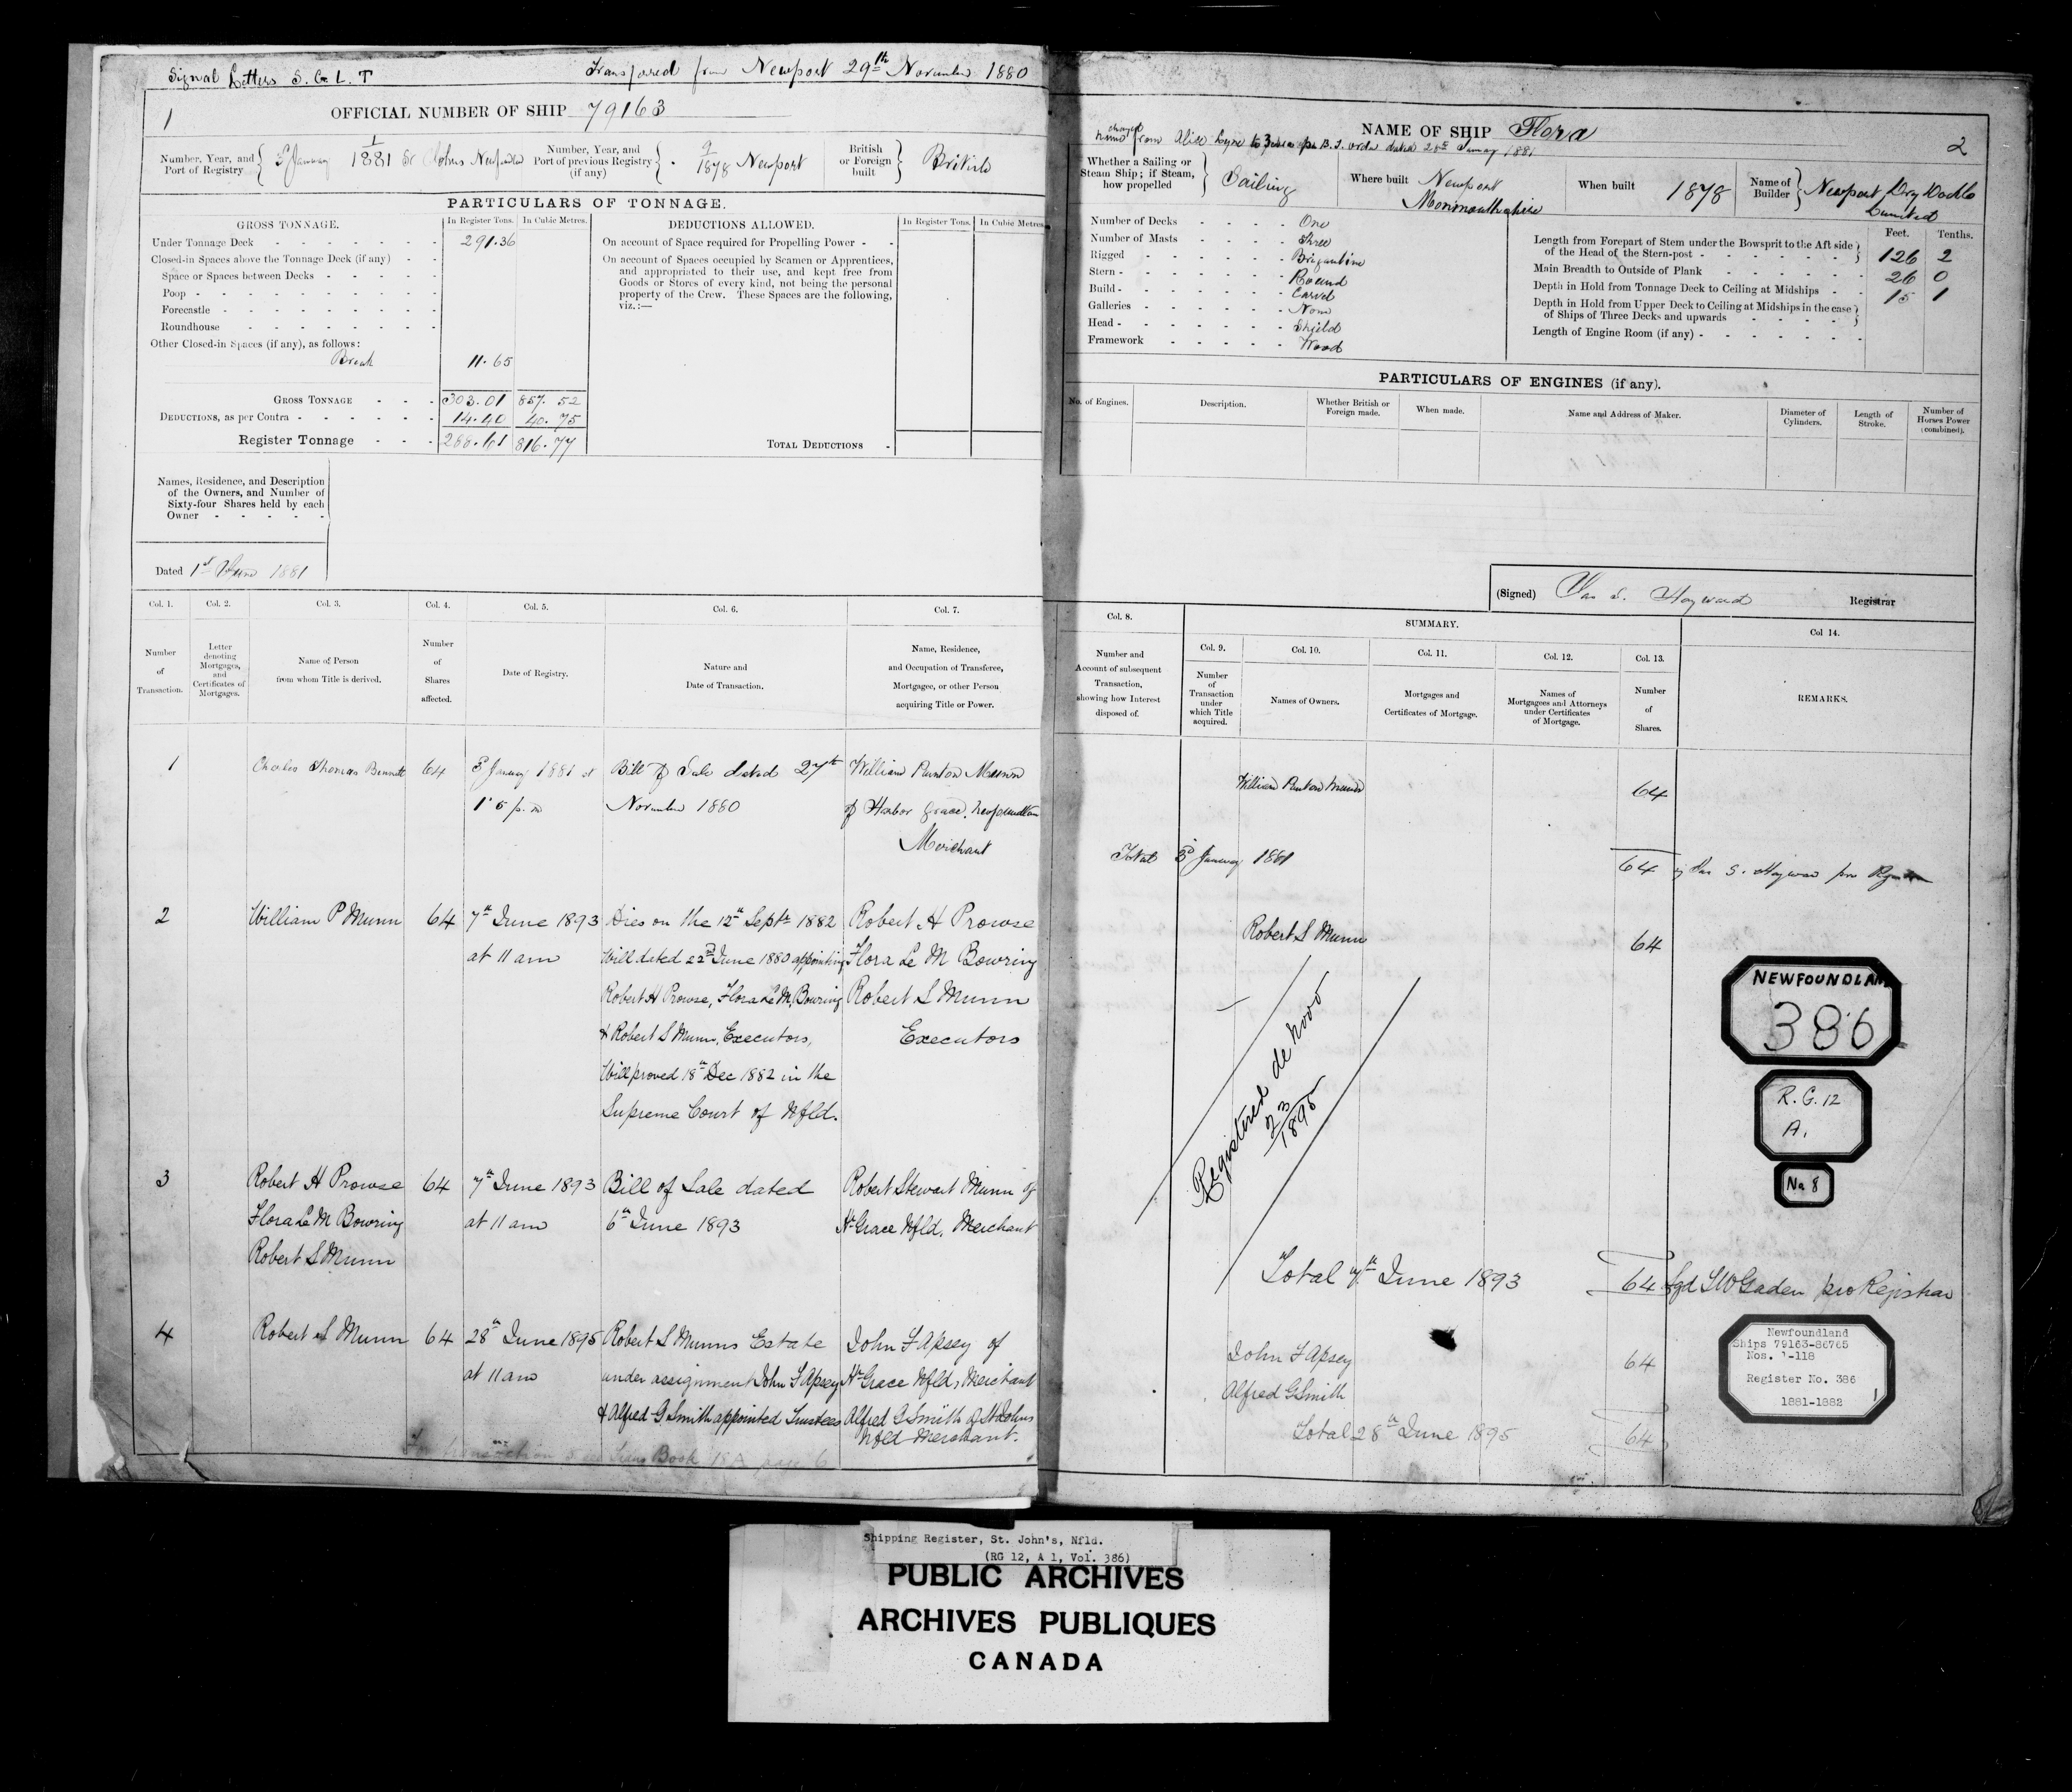 Signal Letters S. G. L. T
Transfered from Newport 29th November 1880
1
OFFICIAL NUMBER OF SHIP 79163
Number, Year, and Port of Registry
January 1/1881 St Johns Newfdld
Number, Year, and Port of previous Registry (if any)
9/1878 Newport
British or Foreign built
British
PARTICULARS OF TONNAGE.
GROSS TONNAGE.
In Register Tons.
In Cubic Metres.
DEDUCTIONS ALLOWED.
In Register Tons.
In Cubic Metres
Under Tonnage Deck 291.36
Closed-in Spaces above the Tonnage Deck (if any)
Space or Spaces between Decks
Poop
Forecastle
Roundhouse
Other Closed-in Spaces (if any), as follows:
Break 11.65
GROSS TONNAGE 303.01 857.52
DEDUCTIONS, as per Contra 14.40 40.75
Register Tonnage 288.61 816.77
On account of Space required for Propelling Power
On account of Spaces occupied by Seamen or Apprentices,
and appropriated to their use, and kept free from
Goods or Stores of every kind, not being the personal
property of the Crew. These Spaces are the following,
viz.:—
TOTAL DEDUCTIONS
Names, Residence, and Description
of the Owners, and Number of
Sixty-four Shares held by each
Owner
Dated 1st 1881
Col. 1.
Number
of
Transaction.
Col. 2.
Letter
denoting
Mortgages,
and
Certificates of
Mortgages.
Col. 3.
Name of Person
from whom Title is derived.
Col. 4.
Number
of
Shares
affected.
Col. 5.
Date of Registry.
Col. 6.
Nature and
Date of Transaction.
Col. 7.
Name, Residence,
and Occupation of Transferee,
Mortgagee, or other Person
acquiring Title or Power.
1
Charles Thomas Bennett
64
January 1881 at
1.5 p.m
Bill of Sale dated 27th
November 1880
William Punton Munn
of Harbor Grace. Newfoundland
Merchant
2
William P Munn
64
7th June 1893
at 11 am
Dies on the 12th Septr 1882
Will dated 22nd June 1880 appointing
Robert H Prowse, Flora Le M, Bowring
& Robert S Munn, Executors,
Will proved 18th Dec 1882 in the
Supreme Court of Nfld.
Robert H Prowse
Flora Le M Bowring
Robert S Munn
Executors
3
Robert H Prowse
Flora Le M Bowring
Robert S Munn
64
7th June 1893
at 11 am
Bill of Sale dated
6th June 1893
Robert Stewart Munn of
Hr Grace Nfld. Merchant
4
Robert S Munn
64
28th June 1895
at 11 am
Robert S Munns Estate
under assignment John F Apsey
& Alfred G Smith appointed Trustees
John F Apsey of
Hr Grace Nfld, Merchant
Alfred G Smith of St Johns
Nfld Merchant.
For transaction 5 see Trans Book 18A page 6
NAME OF SHIP Flora
2
name changed from Alice Lyne to Flora per B.T. order dated 28th January 1881
Whether a Sailing or
Steam Ship; if Steam,
how propelled
Sailing
Where built Newport
Monmouthshire
When built 1878
Name of
Builder
Newport Dry Dock Co
Limited
Number of Decks One
Number of Masts Three
Rigged Brigantine
Stern Round
Build Carvel
Galleries None
Head Shield
Framework Wood
Feet. Tenths.
Length from Forepart of Stem under the Bowsprit to the Aft side
of the Head of the Stern-post 126 2
Main Breadth to Outside of Plank 26 0
Depth in Hold from Tonnage Deck to Ceiling at Midships 15 1
Depth in Hold from Upper Deck to Ceiling at Midships in the case
of Ships of Three Decks and upwards
Length of Engine Room (if any)
PARTICULARS OF ENGINES (if any).
No. of Engines.
Description.
Whether British or
Foreign made.
When made.
Name and Address of Maker.
Diameter of
Cylinders.
Length of
Stroke.
Number of
Horses Power
(combined).
(Signed) S. Hayward Registrar
Col. 8.
Number and
Account of subsequent
Transaction,
showing how Interest
disposed of.
SUMMARY.
Col. 9.
Number
of
Transaction
under
which Title
acquired.
Col. 10.
Names of Owners.
Col. 11.
Mortgages and
Certificates of Mortgage.
Col. 12.
Names of
Mortgagees and Attorneys
under Certificates
of Mortgage.
Col. 13.
Number
of
Shares.
Col 14.
REMARKS.
William Punton Munn 64
Total January 1881 64
Robert S Munn 64
Registered de novo
2/1895
Total 7th June 1893 64 Sgd Gaden pro Registrar
John F Apsey 64
Alfred G Smith
Total 28th June 1895 64
NEWFOUNDLAND
386
R.G. 12
A.
No 8
Newfoundland
Ships 79163-86765
Nos. 1-118
Register No. 386
1881-1882
Shipping Register, St. John's, Nfld.
(RG 12, A 1, Vol. 386)
PUBLIC ARCHIVES
ARCHIVES PUBLIQUES
CANADA